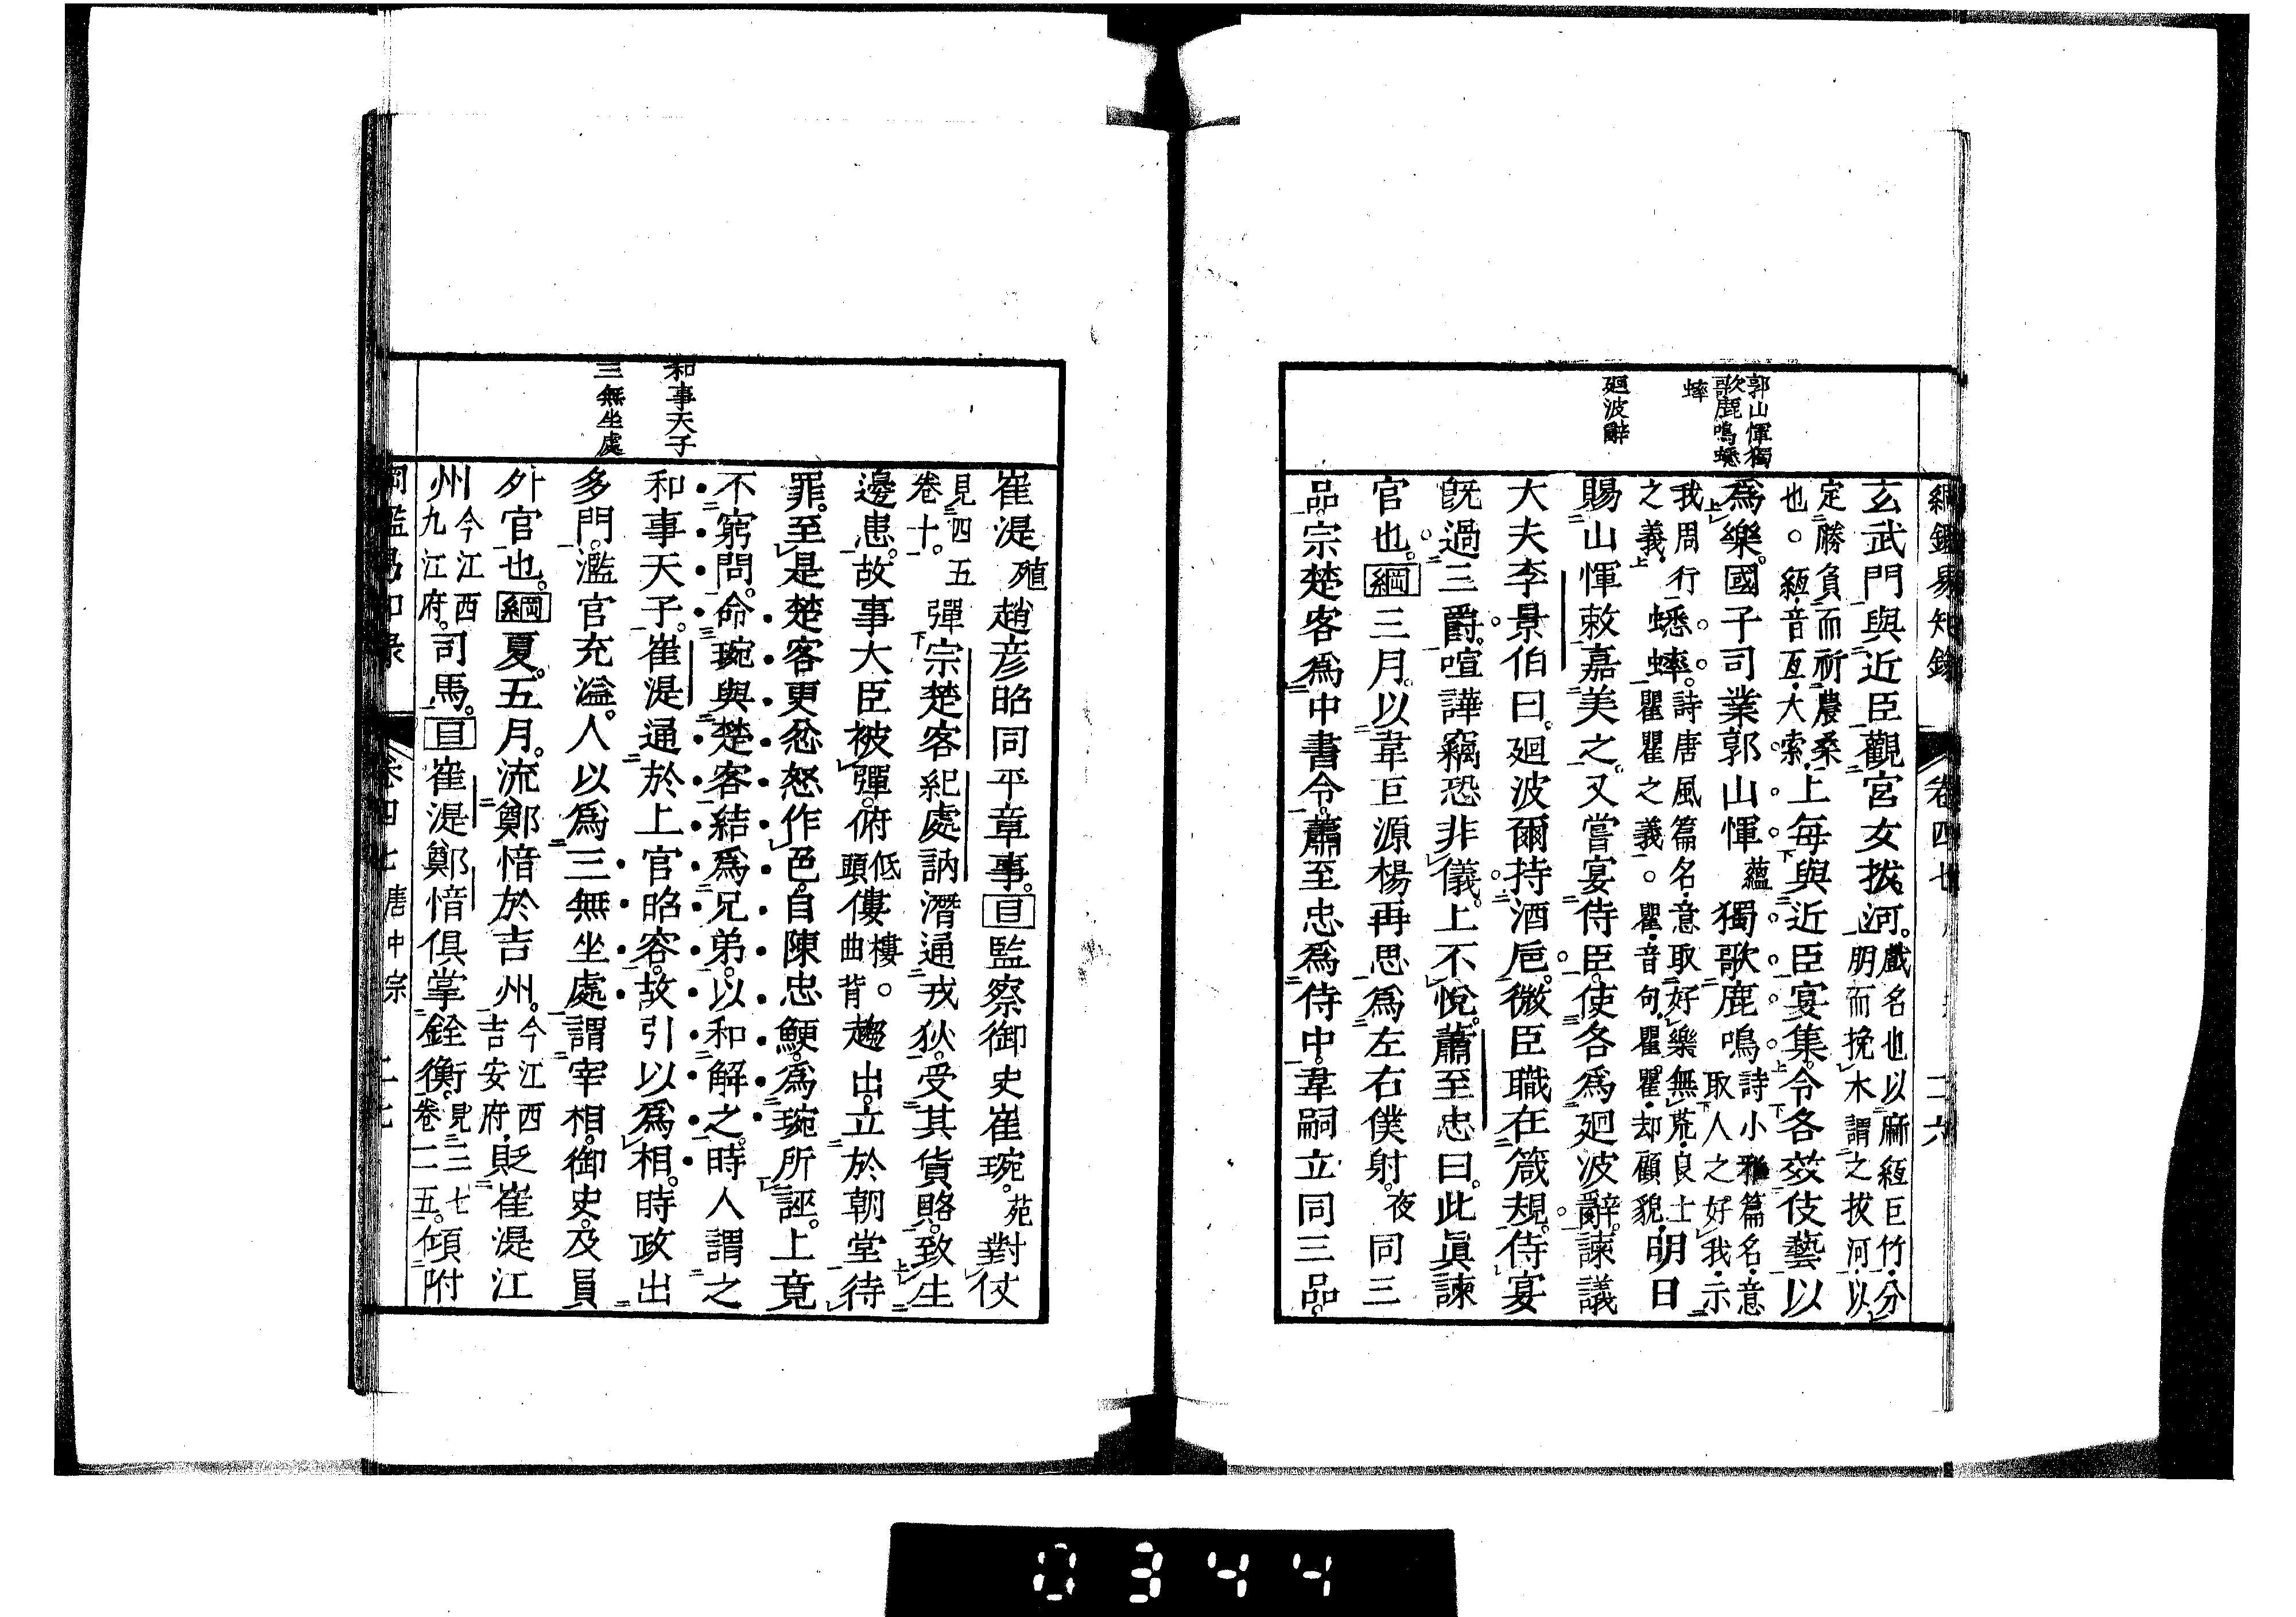 綱鑑易知錄 卷四七 二六
郭山惲獨
歌鹿鳴蟋
蟀
廻波辭
玄武門與近臣觀宮女拔河。戲名也以麻絙巨竹分朋而挽木謂之拔河以
定勝負而祈農桑也。絙音亙大索上每與近臣宴集。令各效伎藝以
爲樂。國子司業郭山惲蘊獨歌鹿鳴詩小雅篇名意取人之好我示
我周行蟋蟀。詩唐風篇名意取好樂無荒良士瞿瞿之義。瞿音句瞿瞿却顧貌明日
之義
賜山惲敕嘉美之。又嘗宴侍臣。使各爲廻波辭。諫議
大夫李景伯曰。廻波爾持酒巵。微臣職在箴規。侍宴
旣過三爵。喧譁竊恐非儀。上不悅。蕭至忠曰。此眞諫
官也。綱三月。以韋巨源楊再思爲左右僕射。夜同三
品。宗楚客爲中書令。蕭至忠爲侍中。韋嗣立同三品。
和事天子
三無坐處
崔湜殖趙彥昭同平章事。目監察御史崔琬。苑對仗
見四五卷十。彈宗楚客紀處訥潛通戎狄。受其貨賂。致生
邊患。故事大臣被彈。俯低頭僂樓。曲背趨出。立於朝堂待
罪。至是楚客更忿怒作色。自陳忠鯁。爲琬所誣。上竟
不窮問。命琬與楚客結爲兄弟。以和解之。時人謂之
和事天子。崔湜通於上官昭容。故引以爲相。時政出
多門。濫官充溢。人以爲三無坐處。謂宰相。御史。及員
外官也。綱夏。五月。流鄭愔於吉州。今江西吉安府貶崔湜江
州今江西九江府。司馬。目崔湜鄭愔俱掌銓衡。見二七卷二五。傾附
卷四七 唐中宗 二七
0344